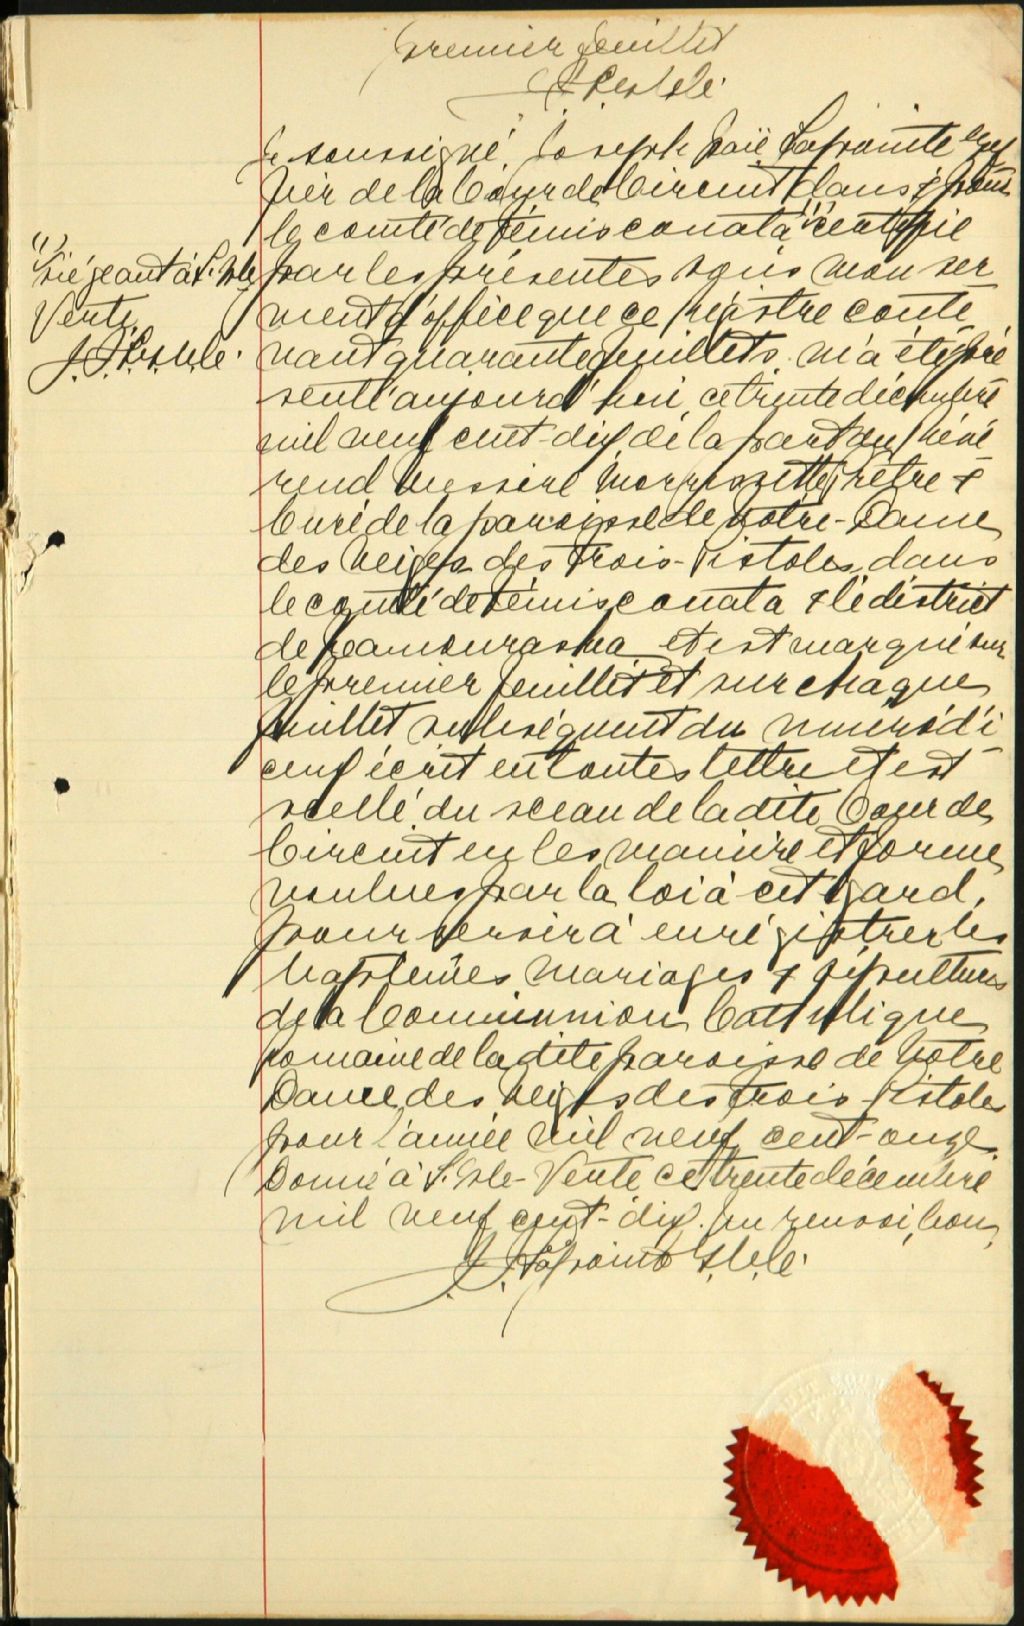 Premier feuillet
Je soussigné, Joseph Lapointe gref
fier de la Cour de Circuit dans & pour
le comté de Témisconata "(1)" certifie
"(1)"
siégeant à S. Isle
Verte,
par les présentes sous mon ser
ment d'office que ce régistre conte
nant quarante feuillets m'a été pré
senté aujourd'hui, ce trente décembre
mil neuf cent-dix de la part du Révé
rend Messire Morrissette, Prêtre &
Curé de la paroisse de Notre-Dame
des Neiges des Trois-Pistoles, dans
le comté de Témisconata & le district
de Kamouraska et est marqué sur
le premier feuillet et sur chaque
feuillet subséquent du numéro d'i
celui écrit en toutes lettre et est
scellé du sceau de la dite Cour de
Circuit en les manière et forme
voulues par la loi à cet égard,
pour servir à enrégistrer les
baptêmes mariages & sépultures
de la Communion Catholique
romaine de la dite paroisse de Notre
Dame des Neiges des Trois-Pistoles
pour l'année mil neuf cent-onze.
Donné à S. Isle-Verte ce trente décembre
mil neuf cent-dix. Un renvoi, bon,
J. Lapointe